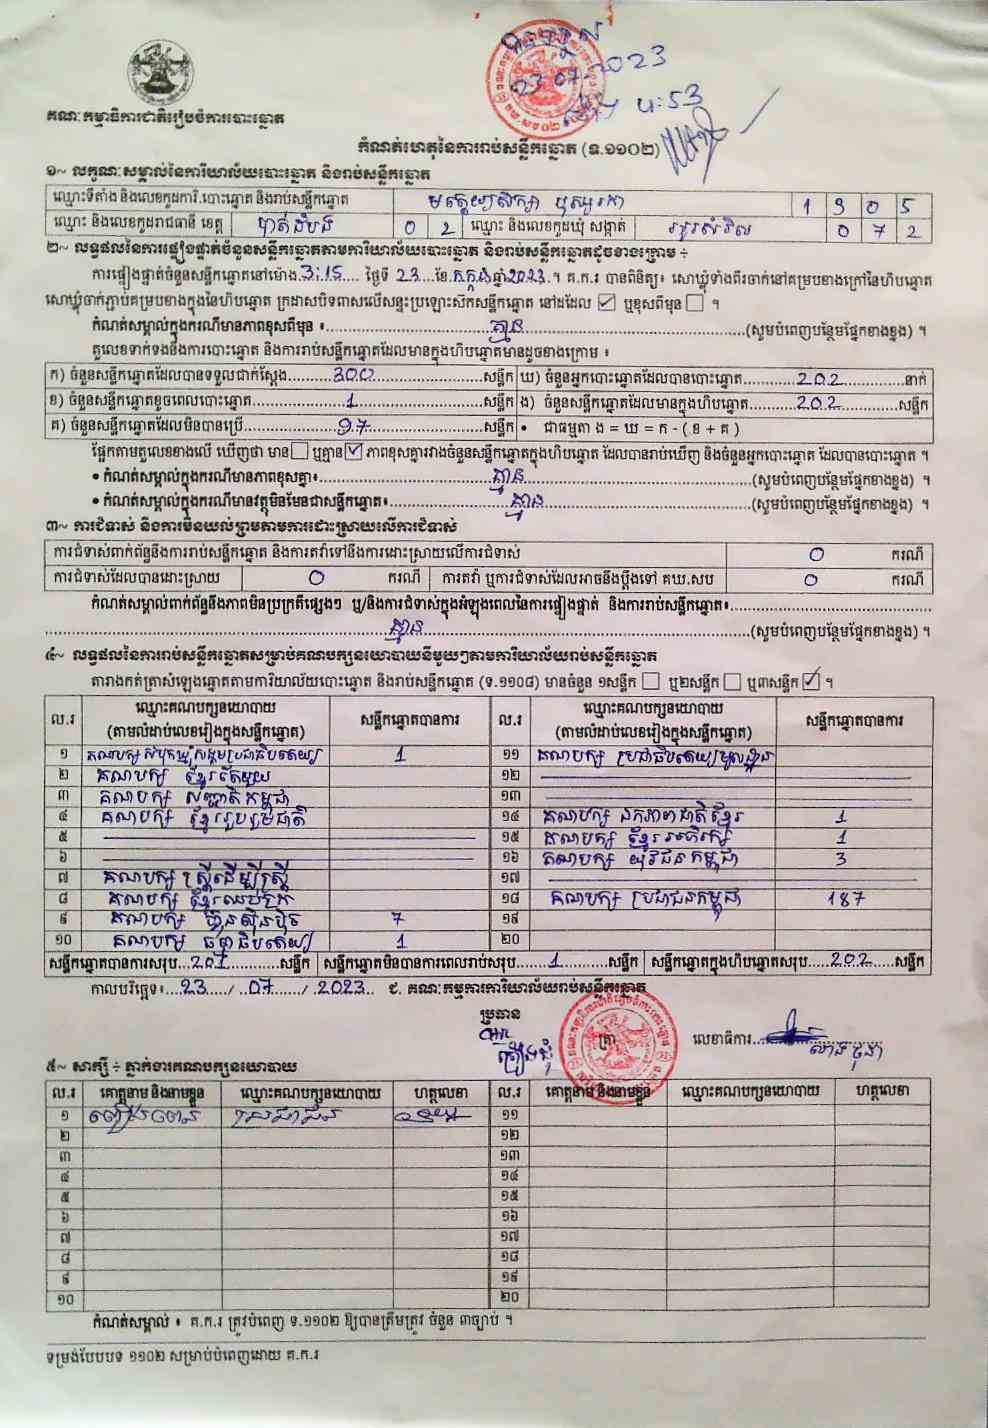 23 07 2023
ម៉ោង ៤:53
គណៈកម្មាធិការជាតិរៀបចំការបោះឆ្នោត
កំណត់ហេតុនៃការរាប់សន្លឹកឆ្នោត (ទ.១១០២)
១~ លក្ខណៈសម្គាល់នៃការិយាល័យបោះឆ្នោត និងរាប់សន្លឹកឆ្នោត
ឈ្មោះទីតាំង និងលេខកូដការិ.បោះឆ្នោត និងរាប់សន្លឹកឆ្នោត 1 9 0 5
ឈ្មោះ និងលេខកូដរាជធានី ខេត្ត បាត់ដំបង 0 2 ឈ្មោះ និងលេខកូដឃុំ សង្កាត់ 0 7 2
២~ លទ្ធផលនៃការផ្ទៀងផ្ទាត់ចំនួនសន្លឹកឆ្នោតតាមការិយាល័យបោះឆ្នោត និងរាប់សន្លឹកឆ្នោតដូចខាងក្រោម ÷
ការផ្ទៀងផ្ទាត់ចំនួនសន្លឹកឆ្នោតនៅម៉ោង 3:15 ថ្ងៃទី 23 ខែ កក្កដា ឆ្នាំ 2023 ។ គ.ក.រ បានពិនិត្យ៖ សោឃ្លុំទាំងពីរចាក់នៅគម្របខាងក្រៅនៃហិបឆ្នោត
សោឃ្លុំចាក់ភ្ជាប់គម្របខាងក្នុងនៃហិបឆ្នោត ក្រដាសបិទពាសលើសន្ទះប្រឡោះសឹកសន្លឹកឆ្នោត នៅដដែល ☑ ឬខុសពីមុន ☐ ។
កំណត់សម្គាល់ក្នុងករណីមានភាពខុសពីមុន ៖ គ្មាន (សូមបំពេញបន្ថែមផ្នែកខាងខ្នង) ។
តួលេខទាក់ទងនឹងការបោះឆ្នោត និងការរាប់សន្លឹកឆ្នោតដែលមានក្នុងហិបឆ្នោតមានដូចខាងក្រោម ៖
ក) ចំនួនសន្លឹកឆ្នោតដែលបានទទួលជាក់ស្តែង 300 សន្លឹក ឃ) ចំនួនអ្នកបោះឆ្នោតដែលបានបោះឆ្នោត 202 នាក់
ខ) ចំនួនសន្លឹកឆ្នោតខូចពេលបោះឆ្នោត 1 សន្លឹក ង) ចំនួនសន្លឹកឆ្នោតដែលមានក្នុងហិបឆ្នោត 202 សន្លឹក
គ) ចំនួនសន្លឹកឆ្នោតដែលមិនបានប្រើ 97 សន្លឹក • ជាធម្មតា ង = ឃ = ក - ( ខ + គ )
ផ្អែកតាមតួលេខខាងលើ ឃើញថា មាន ☐ ឬគ្មាន ☑ ភាពខុសគ្នារវាងចំនួនសន្លឹកឆ្នោតក្នុងហិបឆ្នោត ដែលបានរាប់ឃើញ និងចំនួនអ្នកបោះឆ្នោត ដែលបានបោះឆ្នោត ។
• កំណត់សម្គាល់ក្នុងករណីមានភាពខុសគ្នា៖ គ្មាន (សូមបំពេញបន្ថែមផ្នែកខាងខ្នង) ។
• កំណត់សម្គាល់ក្នុងករណីមានវត្ថុមិនមែនជាសន្លឹកឆ្នោត៖ គ្មាន (សូមបំពេញបន្ថែមផ្នែកខាងខ្នង) ។
៣~ ការជំទាស់ និងការមិនយល់ព្រមតាមការដោះស្រាយលើការជំទាស់
ការជំទាស់ពាក់ព័ន្ធនឹងការរាប់សន្លឹកឆ្នោត និងការតវ៉ាទៅនឹងការដោះស្រាយលើការជំទាស់ 0 ករណី
ការជំទាស់ដែលបានដោះស្រាយ 0 ករណី ការតវ៉ា ឬការជំទាស់ដែលអាចនឹងប្តឹងទៅ គឃ.សប 0 ករណី
កំណត់សម្គាល់ពាក់ព័ន្ធនឹងភាពមិនប្រក្រតីផ្សេងៗ ឬ/និងការជំទាស់ក្នុងអំឡុងពេលនៃការផ្ទៀងផ្ទាត់ និងការរាប់សន្លឹកឆ្នោត៖
គ្មាន (សូមបំពេញបន្ថែមផ្នែកខាងខ្នង) ។
៤~ លទ្ធផលនៃការរាប់សន្លឹកឆ្នោតសម្រាប់គណបក្សនយោបាយនីមួយៗតាមការិយាល័យរាប់សន្លឹកឆ្នោត
តារាងកត់ត្រាសំឡេងឆ្នោតតាមការិយាល័យបោះឆ្នោត និងរាប់សន្លឹកឆ្នោត (ទ.១១០៨) មានចំនួន ១សន្លឹក ☐ ឬ២សន្លឹក ☐ ឬ៣សន្លឹក ☑ ។
ល.រ ឈ្មោះគណបក្សនយោបាយ (តាមលំដាប់លេខរៀងក្នុងសន្លឹកឆ្នោត) សន្លឹកឆ្នោតបានការ ល.រ ឈ្មោះគណបក្សនយោបាយ (តាមលំដាប់លេខរៀងក្នុងសន្លឹកឆ្នោត) សន្លឹកឆ្នោតបានការ
១ គណបក្ស សំបុកឃ្មុំសង្គមប្រជាធិបតេយ្យ 1 ១១ គណបក្ស ប្រជាធិបតេយ្យមូលដ្ឋាន
២ គណបក្ស ខ្មែរតែមួយ ១២
៣ គណបក្ស សញ្ជាតិកម្ពុជា ១៣
៤ គណបក្ស ខ្មែររួបរួមជាតិ ១៤ គណបក្ស ឯកភាពជាតិខ្មែរ 1
៥ ១៥ គណបក្ស ខ្មែរអភិរក្ស 1
៦ ១៦ គណបក្ស យុវជនកម្ពុជា 3
៧ គណបក្ស ស្ត្រីដើម្បីស្ត្រី ១៧
៨ គណបក្ស ខ្មែរឈប់ក្រ ១៨ គណបក្ស ប្រជាជនកម្ពុជា 187
៩ គណបក្ស ហ្វ៊ុនស៊ិនប៉ិច 7 ១៩
១០ គណបក្ស ធម្មាធិបតេយ្យ 1 ២០
សន្លឹកឆ្នោតបានការសរុប 201 សន្លឹក សន្លឹកឆ្នោតមិនបានការពេលរាប់សរុប 1 សន្លឹក សន្លឹកឆ្នោតក្នុងហិបឆ្នោតសរុប 202 សន្លឹក
កាលបរិច្ឆេទ៖ 23 / 07 / 2023 ៩. គណៈកម្មការការិយាល័យរាប់សន្លឹកឆ្នោត
ប្រធាន ត្រា លេខាធិការ
៥~ សាក្សី ÷ ភ្នាក់ងារគណបក្សនយោបាយ
ល.រ គោត្តនាម និងនាមខ្លួន ឈ្មោះគណបក្សនយោបាយ ហត្ថលេខា ល.រ គោត្តនាម និងនាមខ្លួន ឈ្មោះគណបក្សនយោបាយ ហត្ថលេខា
១ ១១
២ ១២
៣ ១៣
៤ ១៤
៥ ១៥
៦ ១៦
៧ ១៧
៨ ១៨
៩ ១៩
១០ ២០
កំណត់សម្គាល់ ៖ គ.ក.រ ត្រូវបំពេញ ទ.១១០២ ឱ្យបានត្រឹមត្រូវ ចំនួន ៣ច្បាប់ ។
ទម្រង់បែបបទ ១១០២ សម្រាប់បំពេញដោយ គ.ក.រ